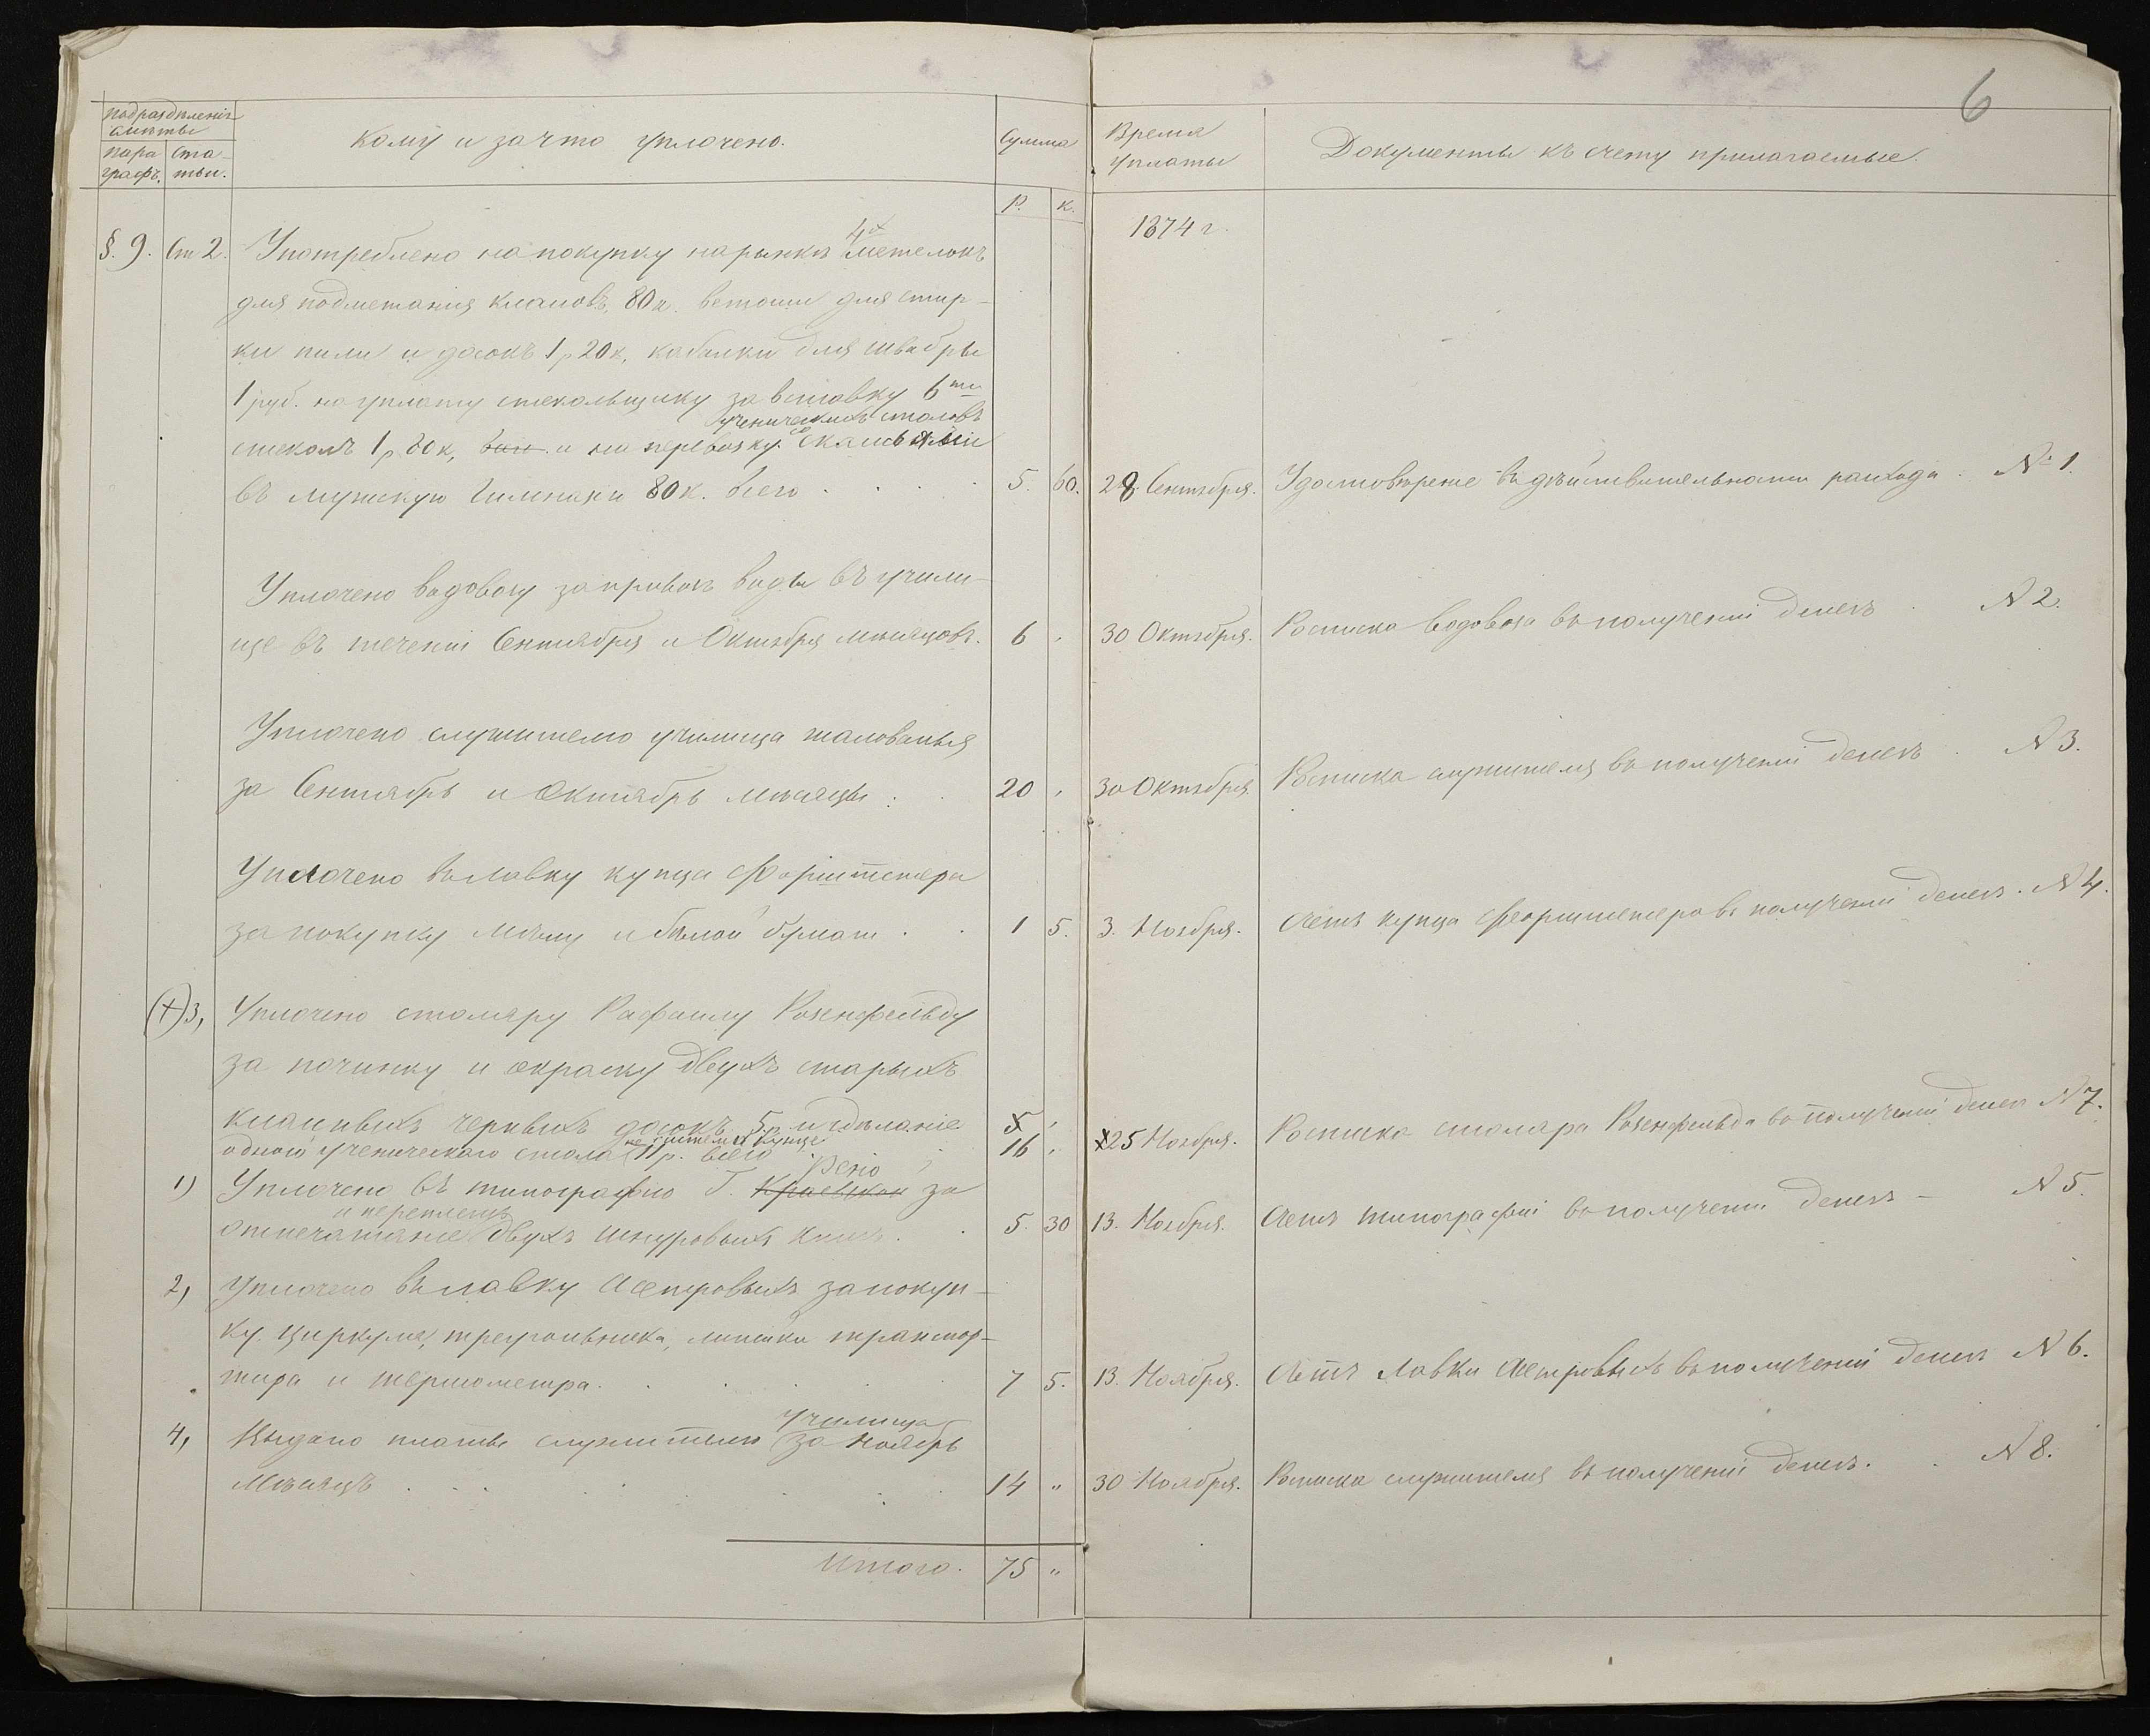 6
Подраздѣленія
смѣты
пара
графъ.
ста
тьи.
Кому и за что уплочено.
Сумма
Р. К.
Время
уплаты
Документы къ счету прилагаемые.
1874 г.
§. 9. Ст 2. Употреблено на покупку на рынкѣ 4х метелокъ
для подметанія класовъ, 80 к. ветоши для стир-
ки пыли и досокъ 1 р 20 к, кабалки для швабры
1 руб. на уплату стекольщику за вставку 6ти
ученическихъ столовъ
стеколъ 1 р 80 к, и на перевозку со скамьями
въ мужскую Гимназіи 80 к. всего 5. 60. 28 Сентября. Удостовѣреніе въ дѣйствительности расхода N 1.
Уплочено водовозу за провозъ воды въ учили-
ще въ теченіи Сентября и Октября мѣсяцовъ. 6 30 Октября. Росписка водовоза въ полученіи денегъ N 2.
Уплочено служителю училища жалованья
за Сентябрь и Октябрь мѣсяцы 20 30 Октября. Росписка служителя въ полученіи денегъ N 3.
Уплочено въ лавку купца
за покупку мѣлу и бѣлой бумаги 1 5. 3. Ноября. Счетъ купца въ полученіи денегъ. N 4.
(+) 3, Уплочено столяру Рафаилу Розенфельду
за починку и окраску двухъ старыхъ
класныхъ черныхъ досокъ 5 р. и сдѣланіе
5
одного ученическаго стола 11 р. всего 16 25 Ноября. Росписка столяра Розенфельда въ полученіи денегъ N 7.
Рено
1) Уплочено въ типографію Г. за
и переплетъ
отпечатаніе двухъ шнуровыхъ книгъ. 5. 30 13. Ноября. Счетъ типографіи въ полученіи денегъ – N 5.
2, Уплочено въ лавку за покуп-
ку циркуля, треугольника, линейки транспор-
тира и термометра. 7 5. 13. Ноября. Счетъ лавки въ полученіи денегъ N 6.
училища
4, Выдано платы служителю за Ноябрь
Мѣсяцъ 14 " 30 Ноября. Росписка служителя въ полученіи денегъ. N 8.
Итого. 75 "